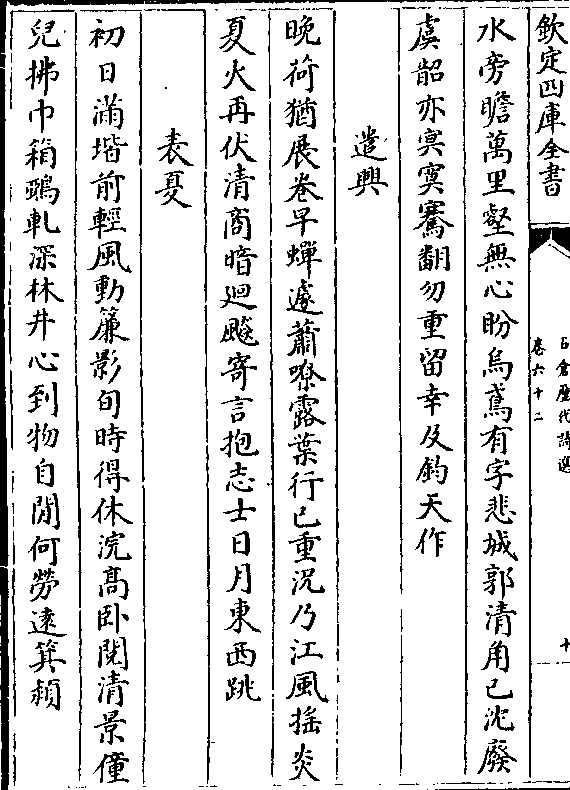 欽定四庫全書
石倉歷代詩選
卷六十二
十
水旁瞻萬里壑無心盼烏鳶有字悲城郭清角已沈廢
虞韶亦㝠寞騫翻勿重留幸及鈞天作
遣興
晚荷猶展卷早蟬遽蕭嘹露葉行已重況乃江風搖炎
夏火再伏清商暗迴飈寄言抱志士日月東西跳
表夏
初日滿堦前輕風動簾影旬時得休浣髙卧閱清景僮
兒拂巾箱鵶軋深林井心到物自閒何勞遠箕潁